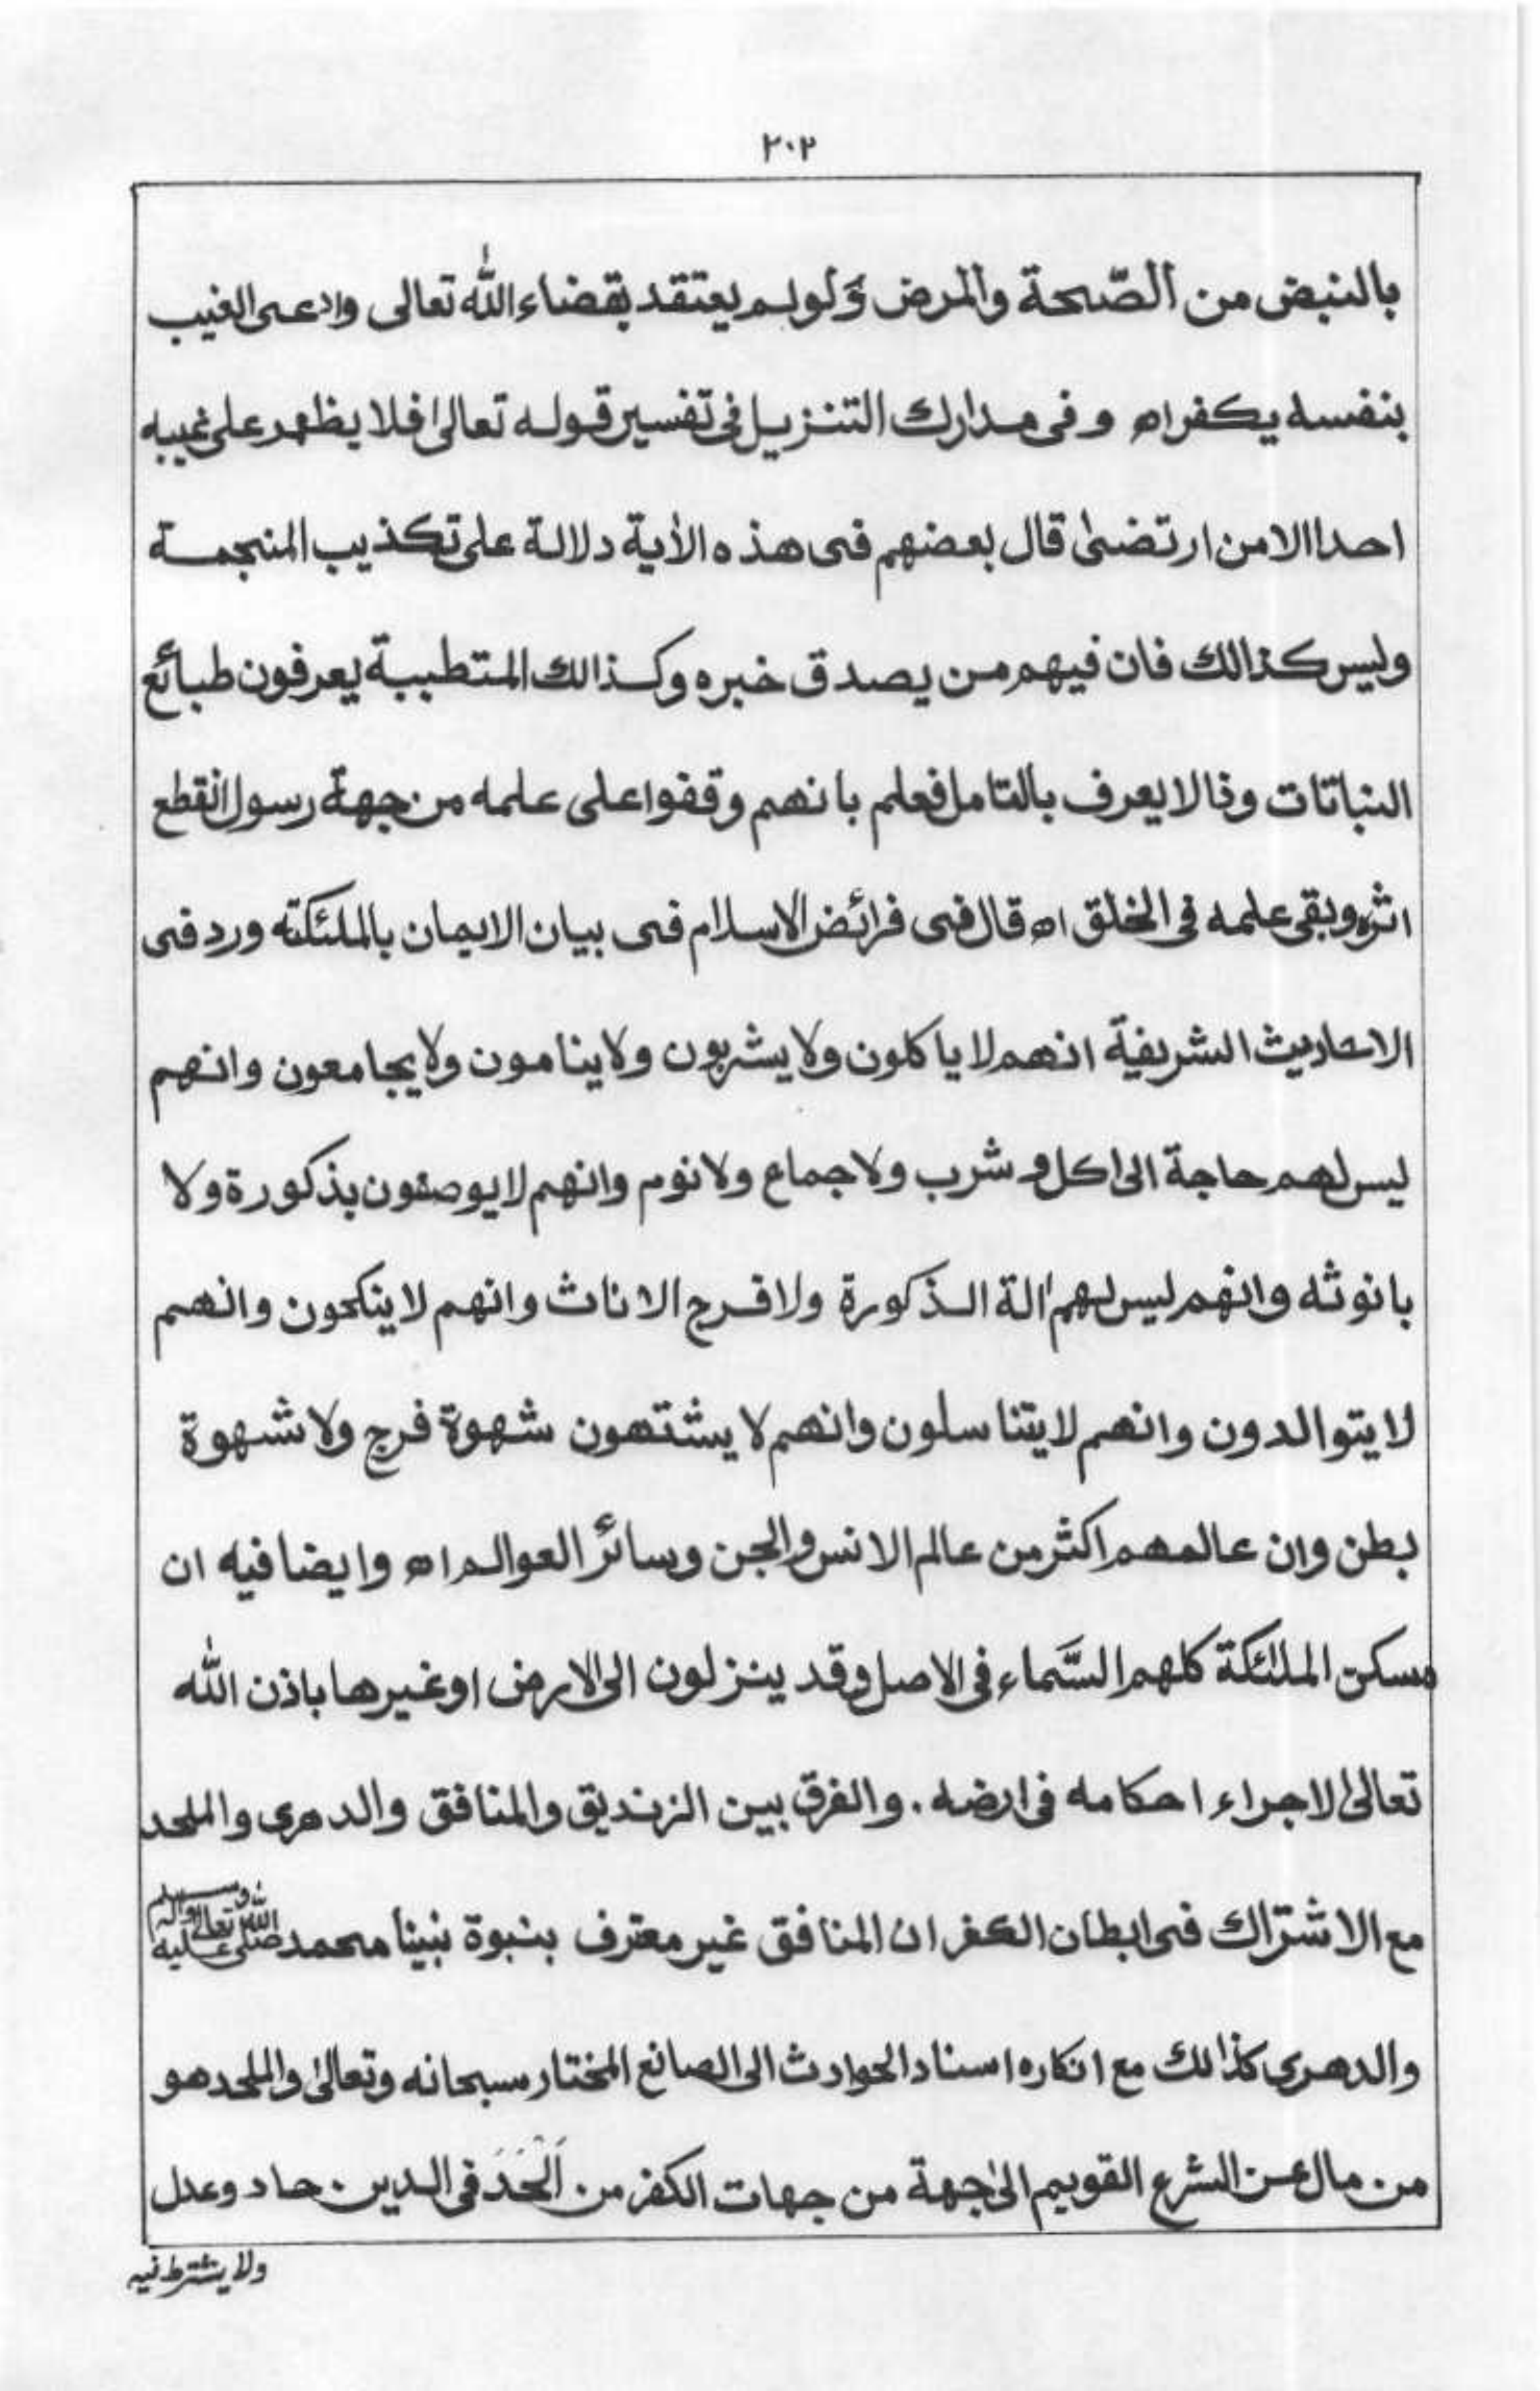 ٢٠٢
بالنبض من الصّحة والمرض وَلولم يعتقد بقضاء الله تعالى وادعى الغيب
بنفسه يكفر اھ وفى مدارك التنزيل فى تفسير قوله تعالىٰ فلا يظهر على غيبه
احدا الامن ارتضىٰ قال بعضهم فى هذه الأية دلالة على تكذيب المنجمة
وليس كذالك فان فيهم من يصدق خبره وكذالك المتطببة يعرفون طبائع
النباتات وذا لا يعرف بالتامل فعلم بانهم وقفوا على علمه من جهة رسول انقطع
اثره وبقى علمه فى الخلق اھ قال فى فرائض الاسلام فى بيان الايمان بالملئكته ورد فى
الاحاديث الشريفة انهم لا ياكلون ولا يشربون ولا ينامون ولا يجامعون وانهم
ليس لهم حاجة الى اكل و شرب ولا جماع ولا نوم وانهم لا يوصفون بذكورة ولا
بانوثه وانهم ليس لهم اٰلة الذكورة ولا فرج الاناث وانهم لا ينكحون وانهم
لا يتوالدون وانهم لا يتناسلون وانهم لا يشتهون شهوة فرج ولا شهوة
بطن وان عالمهم اكثر من عالم الانس والجن وسائر العوالم اھ وايضا فيه ان
مسكن الملائكة كلهم السَّماء فى الاصل وقد ينزلون الى الارض او غيرها باذن الله
تعالىٰ لاجراء احكامه فى ارضه. والفرق بين الزنديق والمنافق والدهرى والملحد
مع الاشتراك فى ابطان الكفر ان المنافق غير معترف بنبوة نبينا محمد صلى الله تعالى عليه واٰله وسلم
والدهرى كذالك مع انكاره اسناد الحوادث الى الصانع المختار سبحانه وتعالىٰ والملحد هو
من مال عن الشرع القويم الىٰ جهة من جهات الكفر من اَلْحَدَ فى الدين. حاد وعدل
ولا يشترط فيه